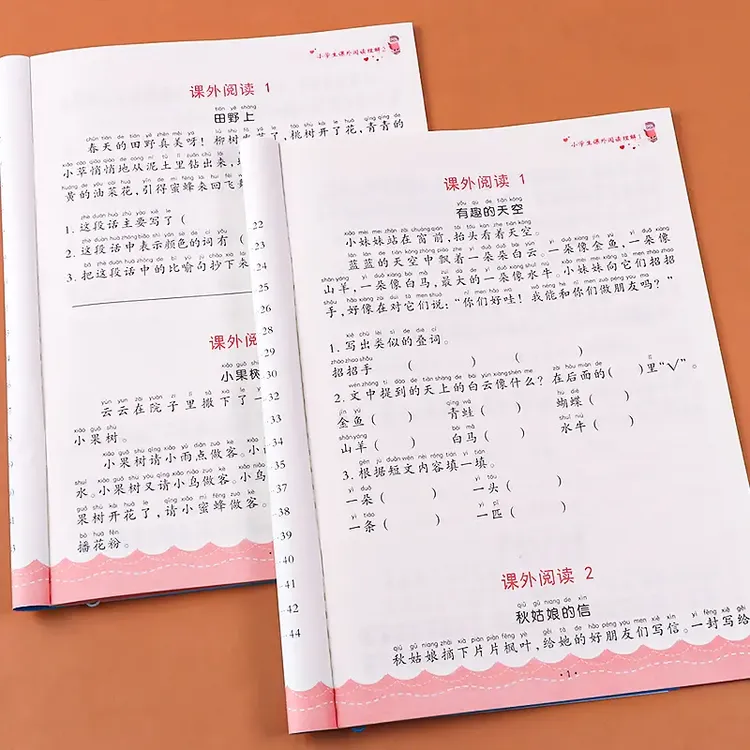 小学生课外阅读理解2
课外阅读 1
tián yě shàng
田野上
chūn tiān de tián yě zhēn měi ya
春天的田野真美呀！柳树发芽了，桃树开了花，青青的
小草悄悄地从泥土里钻出来，
huáng de yóu cài huā yǐn dé mì fēng lái huí fēi
黄的油菜花，引得蜜蜂来回飞
zhè duàn huà zhǔ yào xiě le
1. 这段话主要写了（
zhè duàn huà zhōng biǎo shì yán sè de cí yǒu
2. 这段话中表示颜色的词有（
bǎ zhè duàn huà zhōng de bǐ yù jù chāo xià lái
3. 把这段话中的比喻句抄下来
课外阅
xiǎo guǒ shù
小果树
yún yun zài yuàn zi lǐ sǎ xià le yì
云云在院子里撒下了一
xiǎo guǒ shù
小果树。
xiǎo guǒ shù qǐng xiǎo yǔ diǎn zuò kè
小果树请小雨点做客。小
shuǐ xiǎo guǒ shù yòu qǐng xiǎo niǎo zuò kè xiǎo niǎo
水。小果树又请小鸟做客。小鸟
guǒ shù kāi huā le qǐng xiǎo mì fēng zuò kè
果树开花了，请小蜜蜂做客。
bō huā fěn
播花粉。
22
23
24
25
26
28
29
30
32
33
34
35
37
38
39
40
41
44
小学生课外阅读理解1
课外阅读 1
yǒu qù de tiān kōng
有趣的天空
xiǎo mèi mei zhàn zài chuāng qián tái tóu kàn zhe tiān kōng
小妹妹站在窗前，抬头看着天空。
蓝蓝的天空中飘着一朵朵白云。一朵像金鱼，一朵像
山羊，一朵像白马，最大的一朵像水牛。小妹妹向它们招招
手，好像在对它们说：“你们好哇！我能和你们做朋友吗？”
xiě chū lèi sì de dié cí
1. 写出类似的叠词。
zhāo zhao shǒu
招招手 （ ） （ ） （ ）
wén zhōng tí dào de tiān shàng de bái yún xiàng shén me zài hòu miàn de lǐ
2. 文中提到的天上的白云像什么？在后面的（ ）里“√”。
jīn yú qīng wā hú dié
金鱼（ ） 青蛙（ ） 蝴蝶（ ）
shān yáng bái mǎ shuǐ niú
山羊（ ） 白马（ ） 水牛（ ）
gēn jù duǎn wén nèi róng tián yì tián
3. 根据短文内容填一填。
yì duǒ yì tóu
一朵（ ） 一头（ ）
yì tiáo yì pǐ
一条（ ） 一匹（ ）
课外阅读 2
qiū gū niang de xìn
秋姑娘的信
qiū gū niang zhāi xià piàn piàn fēng yè gěi tā de hǎo péng yǒu men xiě xìn yì fēng xiě gěi
秋姑娘摘下片片枫叶，给她的好朋友们写信。一封写给
·1·